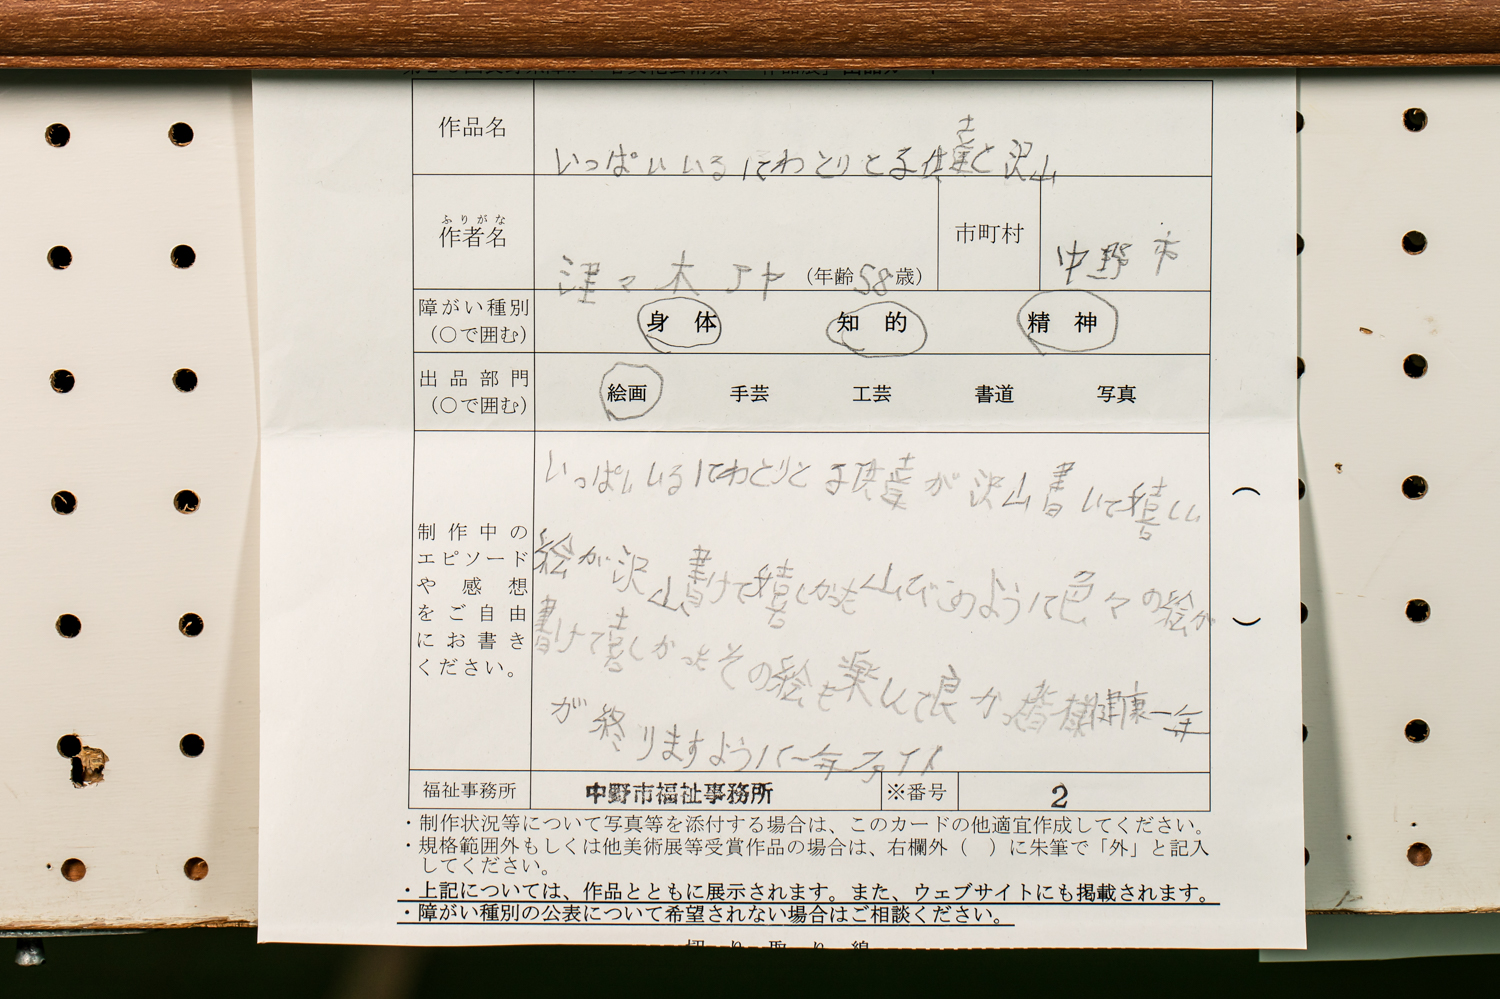 作品名
いっぱいいるにわとりと子供達と沢山
ふりがな
作者名
々木
(年齢 58歳)
市町村
中野市
障がい種別
(○で囲む)
身体 知的 精神
出品部門
(○で囲む)
絵画 手芸 工芸 書道 写真
制作中の
エピソード
や感想
をご自由
にお書き
ください。
いっぱいいるにわとりと子供達が沢山書いて嬉しい
絵が沢山書けて嬉しかった山でこのように色々の絵が
書けて嬉しかったその絵も楽しんで良かっ皆様健康一年
が終りますように一年ファイト
( )
福祉事務所
中野市福祉事務所
※番号
2
・制作状況等について写真等を添付する場合は、このカードの他適宜作成してください。
・規格範囲外もしくは他美術展等受賞作品の場合は、右欄外( )に朱筆で「外」と記入
してください。
・上記については、作品とともに展示されます。また、ウェブサイトにも掲載されます。
・障がい種別の公表について希望されない場合はご相談ください。
切り取り線